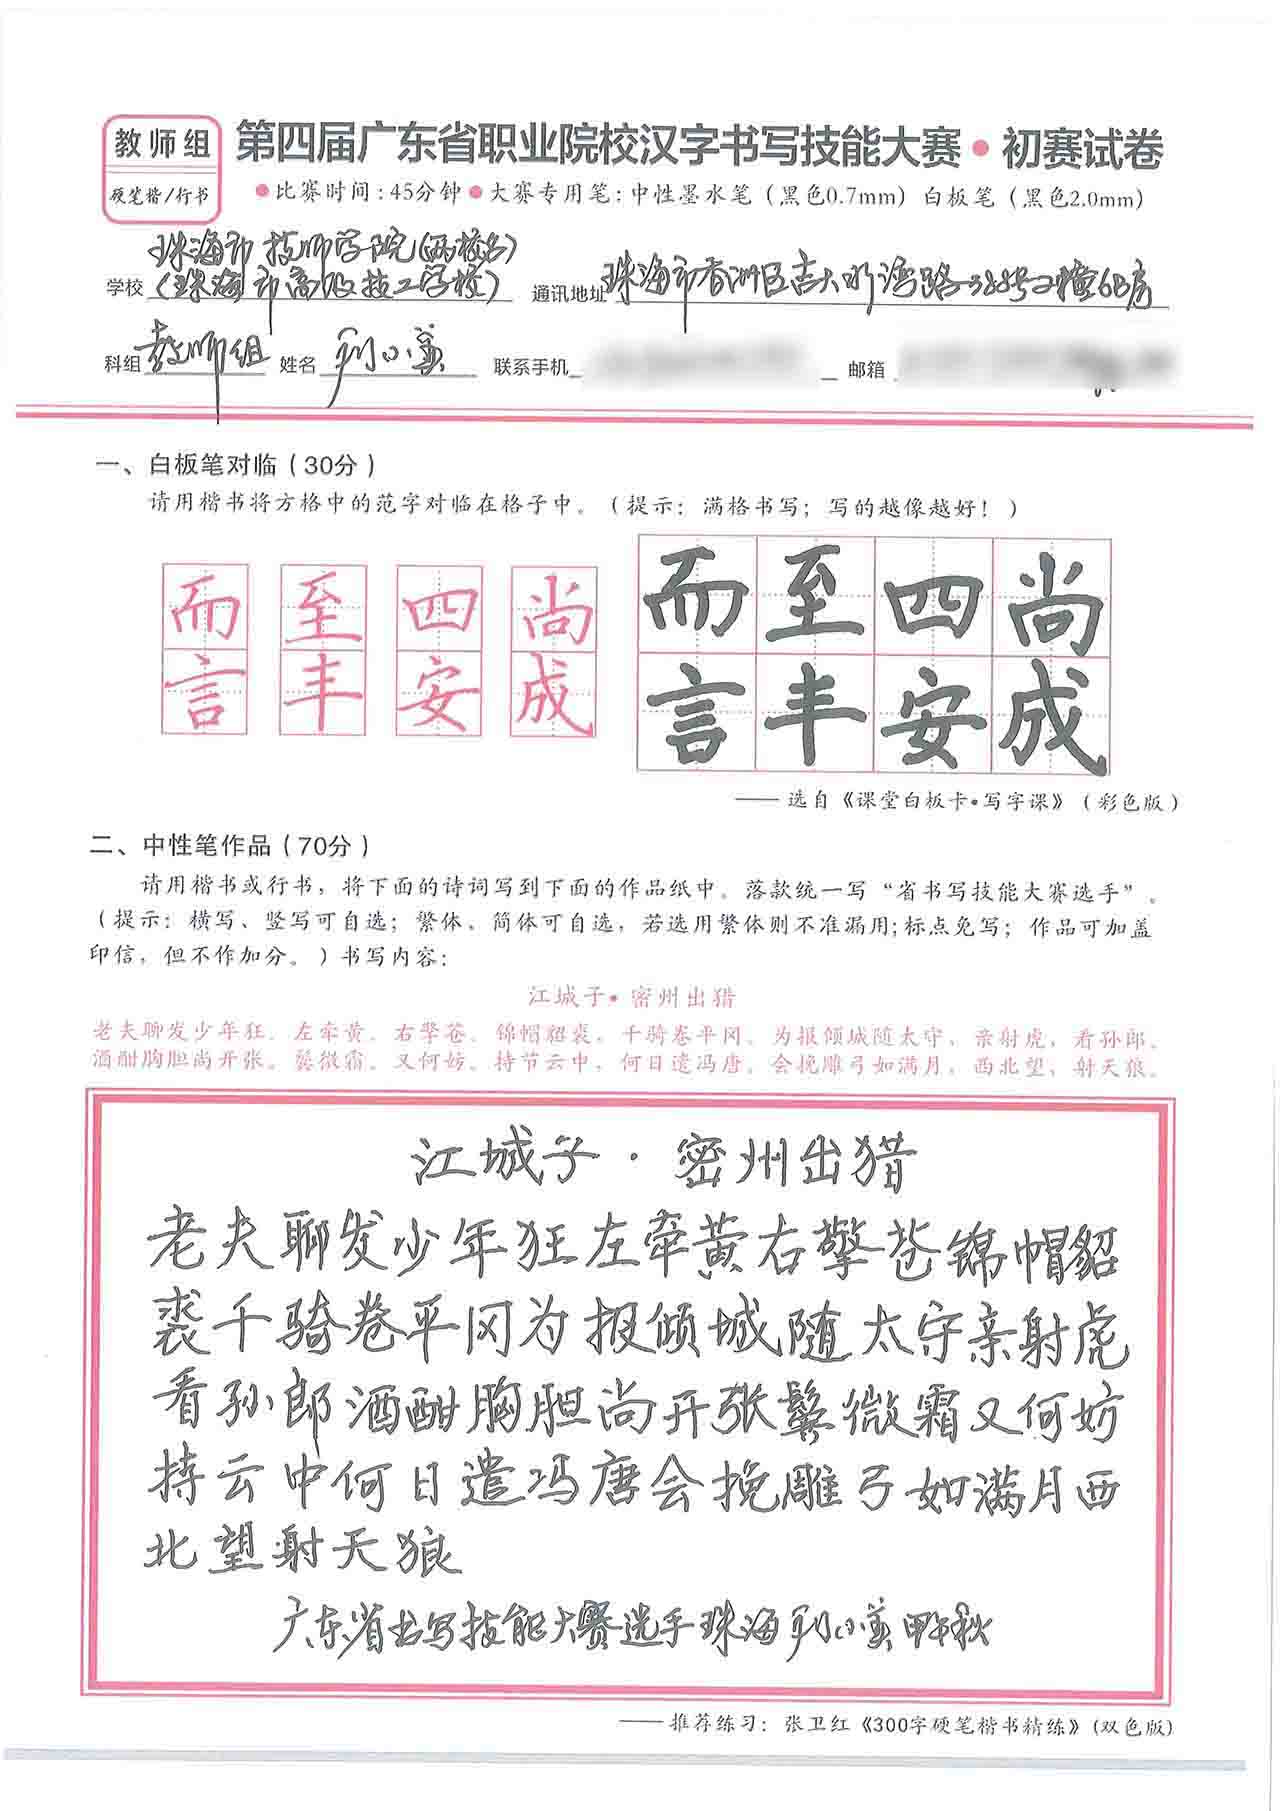 教师组
硬笔楷/行书
第四届广东省职业院校汉字书写技能大赛•初赛试卷
•比赛时间:45分钟•大赛专用笔:中性墨水笔（黑色0.7mm）白板笔（黑色2.0mm）
珠海市技师学院(两校名)
学校(珠海市高级技工学校) 通讯地址珠海市香洲区吉大水湾路
科组 教师组 姓名 联系手机 邮箱
一、白板笔对临（30分）
请用楷书将方格中的范字对临在格子中。（提示：满格书写；写的越像越好！）
而 至 四 尚 而至四尚
言 丰 安 成 言丰安成
——选自《课堂白板卡•写字课》（彩色版）
二、中性笔作品（70分）
请用楷书或行书，将下面的诗词写到下面的作品纸中。落款统一写“省书写技能大赛选手”。
（提示：横写、竖写可自选；繁体、简体可自选，若选用繁体则不准漏用;标点免写；作品可加盖
印信，但不作加分。）书写内容:
江城子•密州出猎
老夫聊发少年狂。左牵黄。右擎苍。锦帽貂裘。千骑卷平冈。为报倾城随太守，亲射虎，看孙郎。
酒酣胸胆尚开张。鬓微霜。又何妨。持节云中，何日遣冯唐。会挽雕弓如满月，西北望，射天狼。
江城子·密州出猎
老夫聊发少年狂左牵黄右擎苍锦帽貂
裘千骑卷平冈为报倾城随太守亲射虎
看孙郎酒酣胸胆尚开张鬓微霜又何妨
持云中何日遣冯唐会挽雕弓如满月西
北望射天狼
广东省书写技能大赛选手珠海
——推荐练习：张卫红《300字硬笔楷书精练》(双色版)